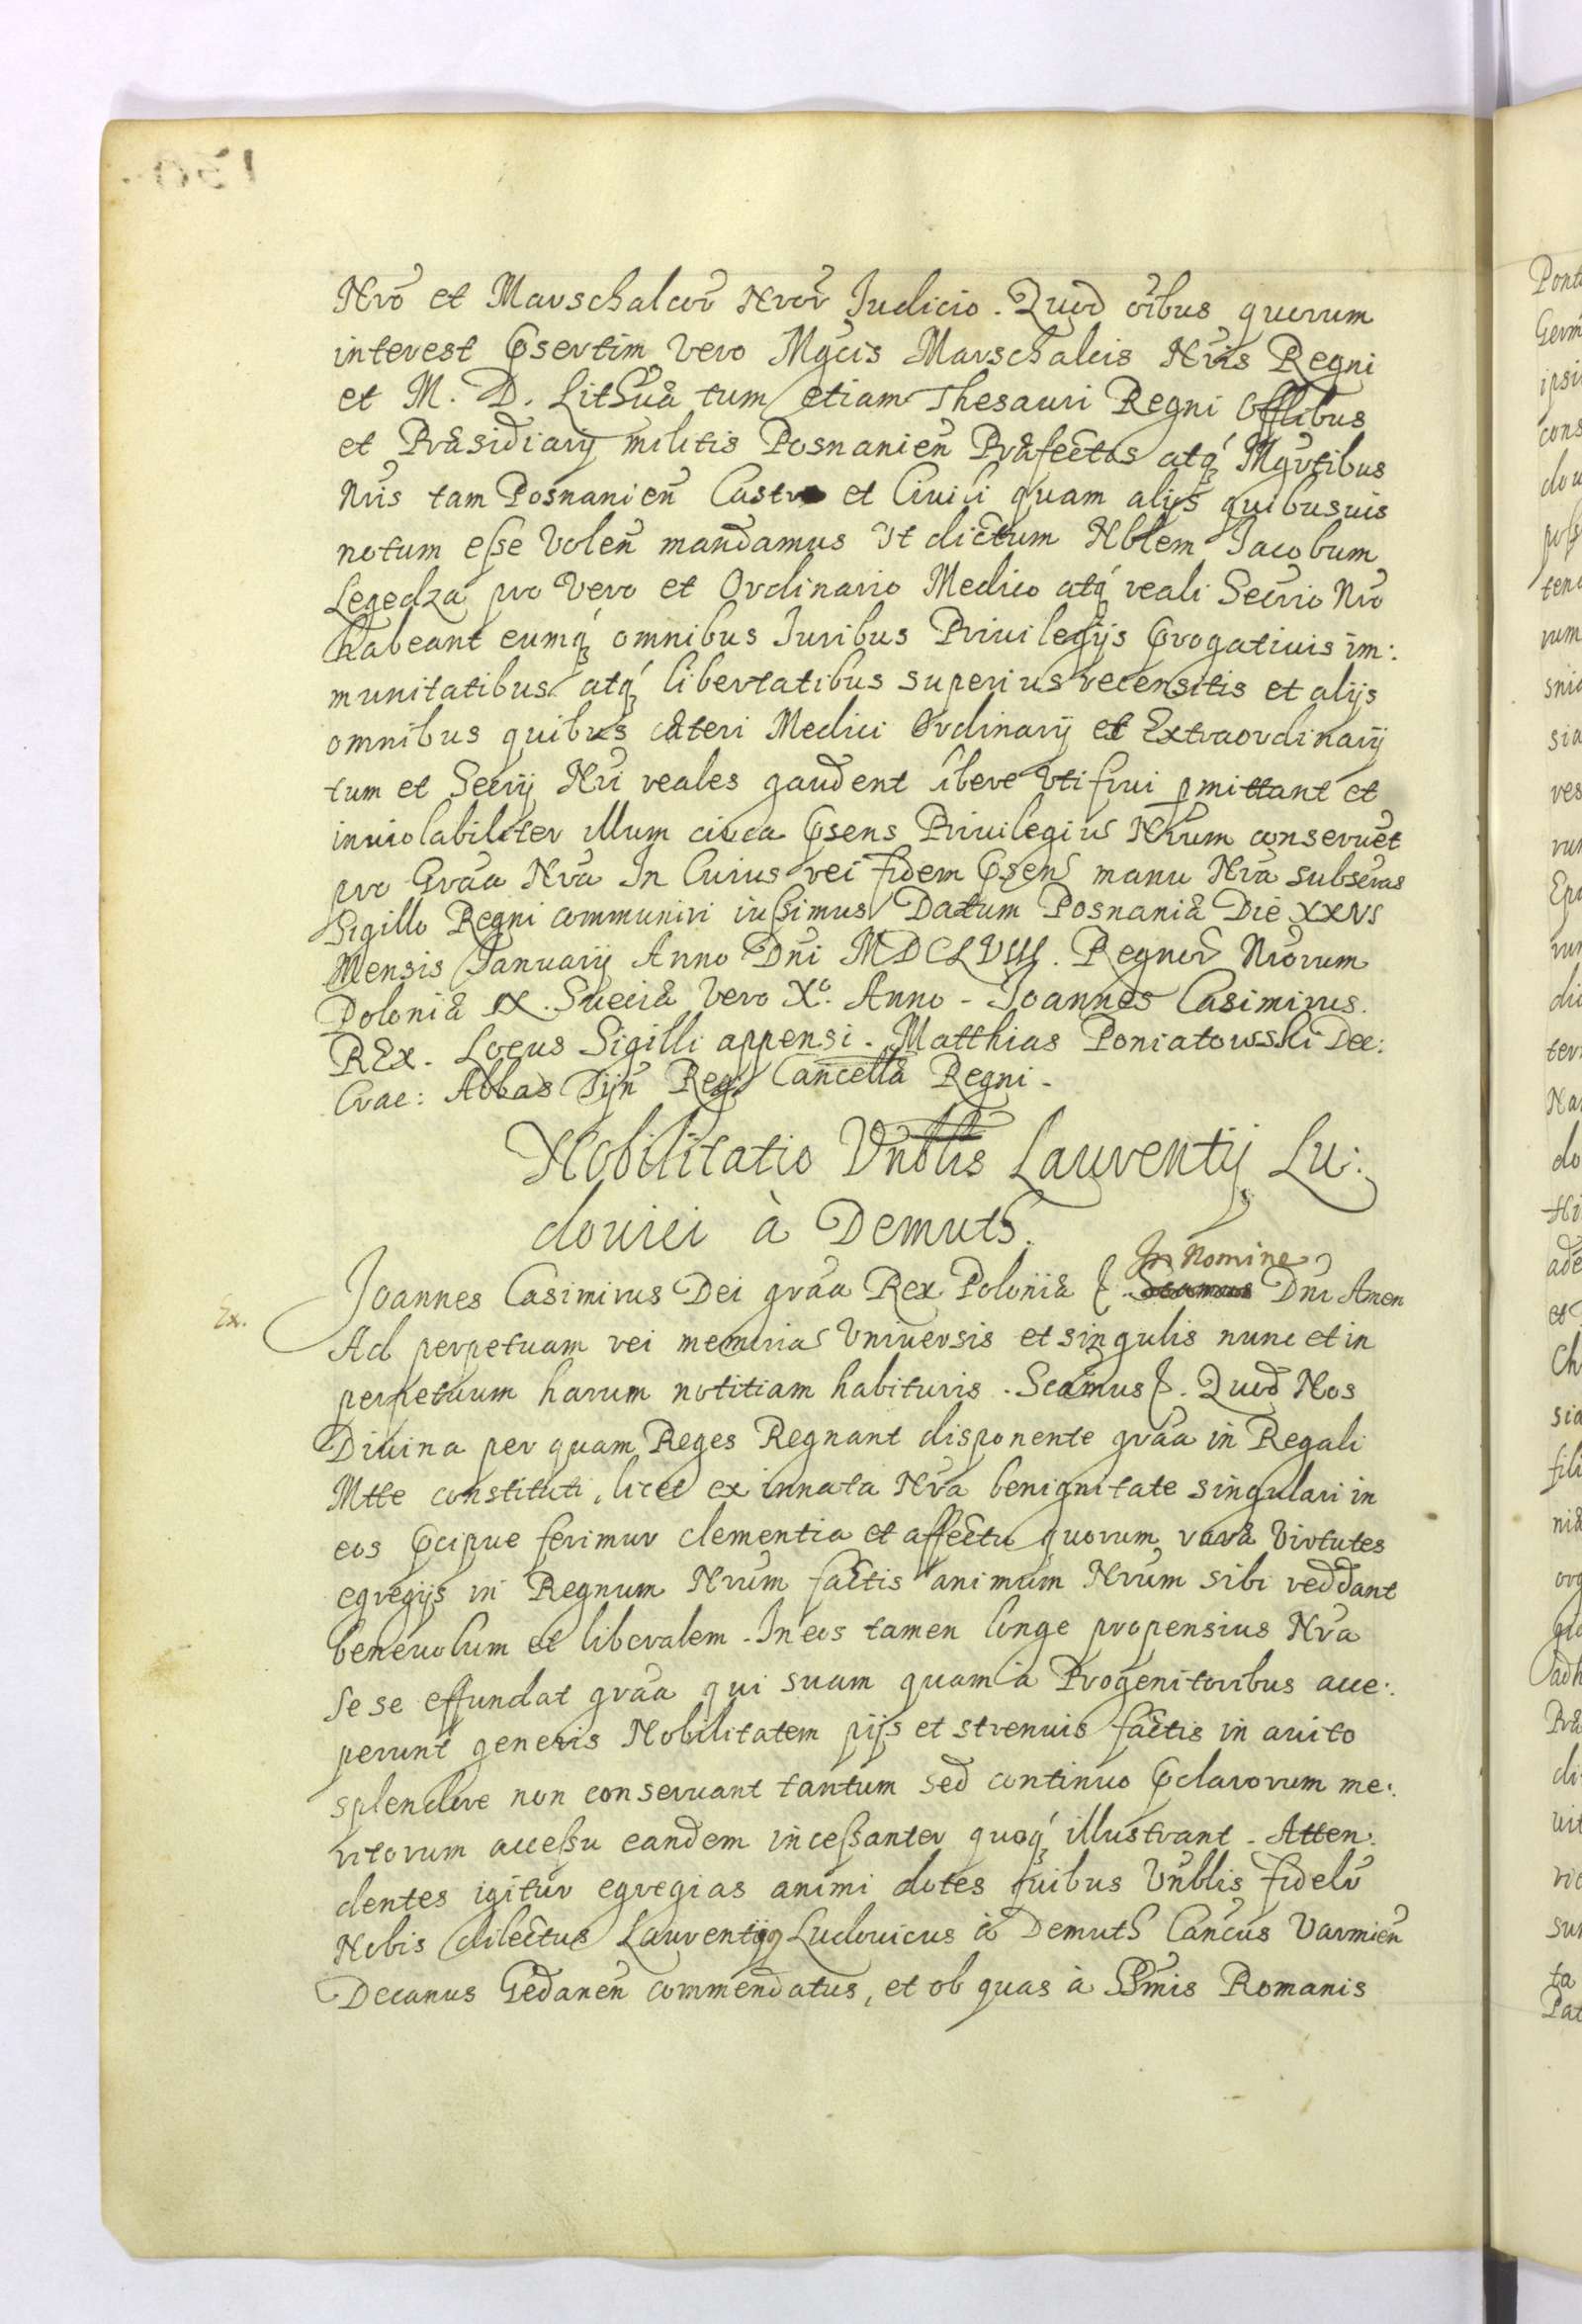 Nro et Marschalcor Nror Iudicio. Quod oibus quorum
interest Psertim vero Mgcis Marschalcis Nris Regni
et M. D. Lithuæ tum etiam Thesauri Regni Offlibus
et Præsidiarij militis Posnanien Præfectos atq Mgrtibus
Nris tam Posnanien Castro et Ciuili quam alijs quibusuis
notum eße volen mandamus Vt dictum Nblem Iacobum
Legedza pro Vero et Ordinario Medico atq reali Secrio Nro
habeant eumq omnibus Iuribus Priuilegijs Progatiuis im:
munitatibus atq libertatibus superius recensitis et alijs
omnibus quibus cæteri Medici Ordinarij et Extraordinarij
tum et Secrij Nri reales gaudent libere Vti frui pmittant et
inuiolabiliter illum circa Psens Priuilegiu Nrum conseruet
pro Graa Nra In Cuius rei fidem Psen manu Nra subscras
Sigillo Regni communiri iußimus Datum Posnaniæ Die
Mensis Ianuarij Anno Dni MDCLVIII. Regnor Nrorum
Poloniæ IX. Sueciæ Vero Xo. Anno - Ioannes Casimirus.
REx. Locus Sigilli appensi. Matthias Poniatowski Dec:
Crac: Abbas Regs Cancellæ Regni.
Nobilitatio Vnblis Laurentij Lu:
douici à Demuth.
In Nomine
Ex. Ioannes Casimirus Dei graa Rex Poloniæ Dni Amen
Ad perpetuam rei memoria Vniuersis et singulis nunc et in
perpetuum harum notitiam habituris. Scamus. Quod Nos
Diuina per quam Reges Regnant disponente graa in Regali
Mtte constituti, licet ex innata Nra benignitate singulari in
eos Pcipue ferimur clementia et affectu quorum raræ Virtutes
egregijs in Regnum Nrum factis animum Nrum sibi reddant
beneuolum et liberalem. In eos tamen longe propensius Nra
se se effundat graa qui suam quam à Progenitoribus acce:
perunt generis Nobilitatem pijs et strenuis factis in auito
splendore non conseruant tantum sed continuo Pclarorum me:
ritorum acceßu eandem inceßanter quoq illustrant. Atten:
dentes igitur egregias animi dotes quibus Vnblis fidelr
Nobis dilectus Laurentijq Ludouicus à Demuth Cancus Varmien
Decanus Gedanen commendatus, et ob quas à SSmis Romanis